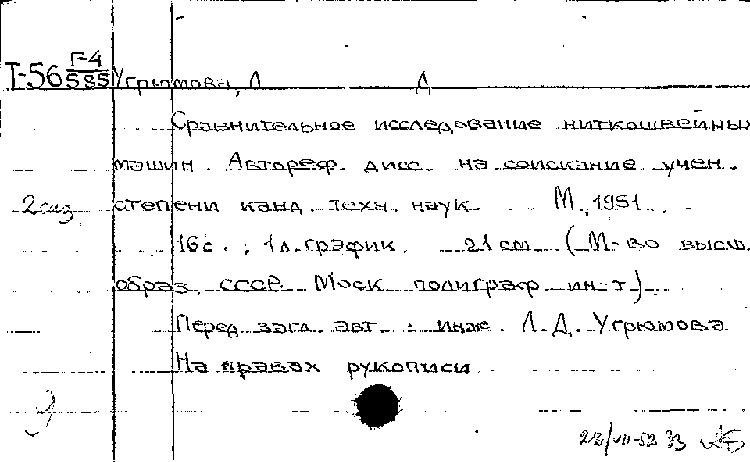 Т-56 Г-4
585
Угрюмова, Л Д
Сравнительное исследование ниткошвейных
машин. Автореф. дисс. на соискание учен.
2 экз степени канд. техн. наук. М., 1951.
16 с.; 1 л. график. 21 см. (М-во высш.
образ. СССР. Моск полиграф. ин-т).
Перед загл. авт.: инж. Л.Д. Угрюмова
На правах рукописи